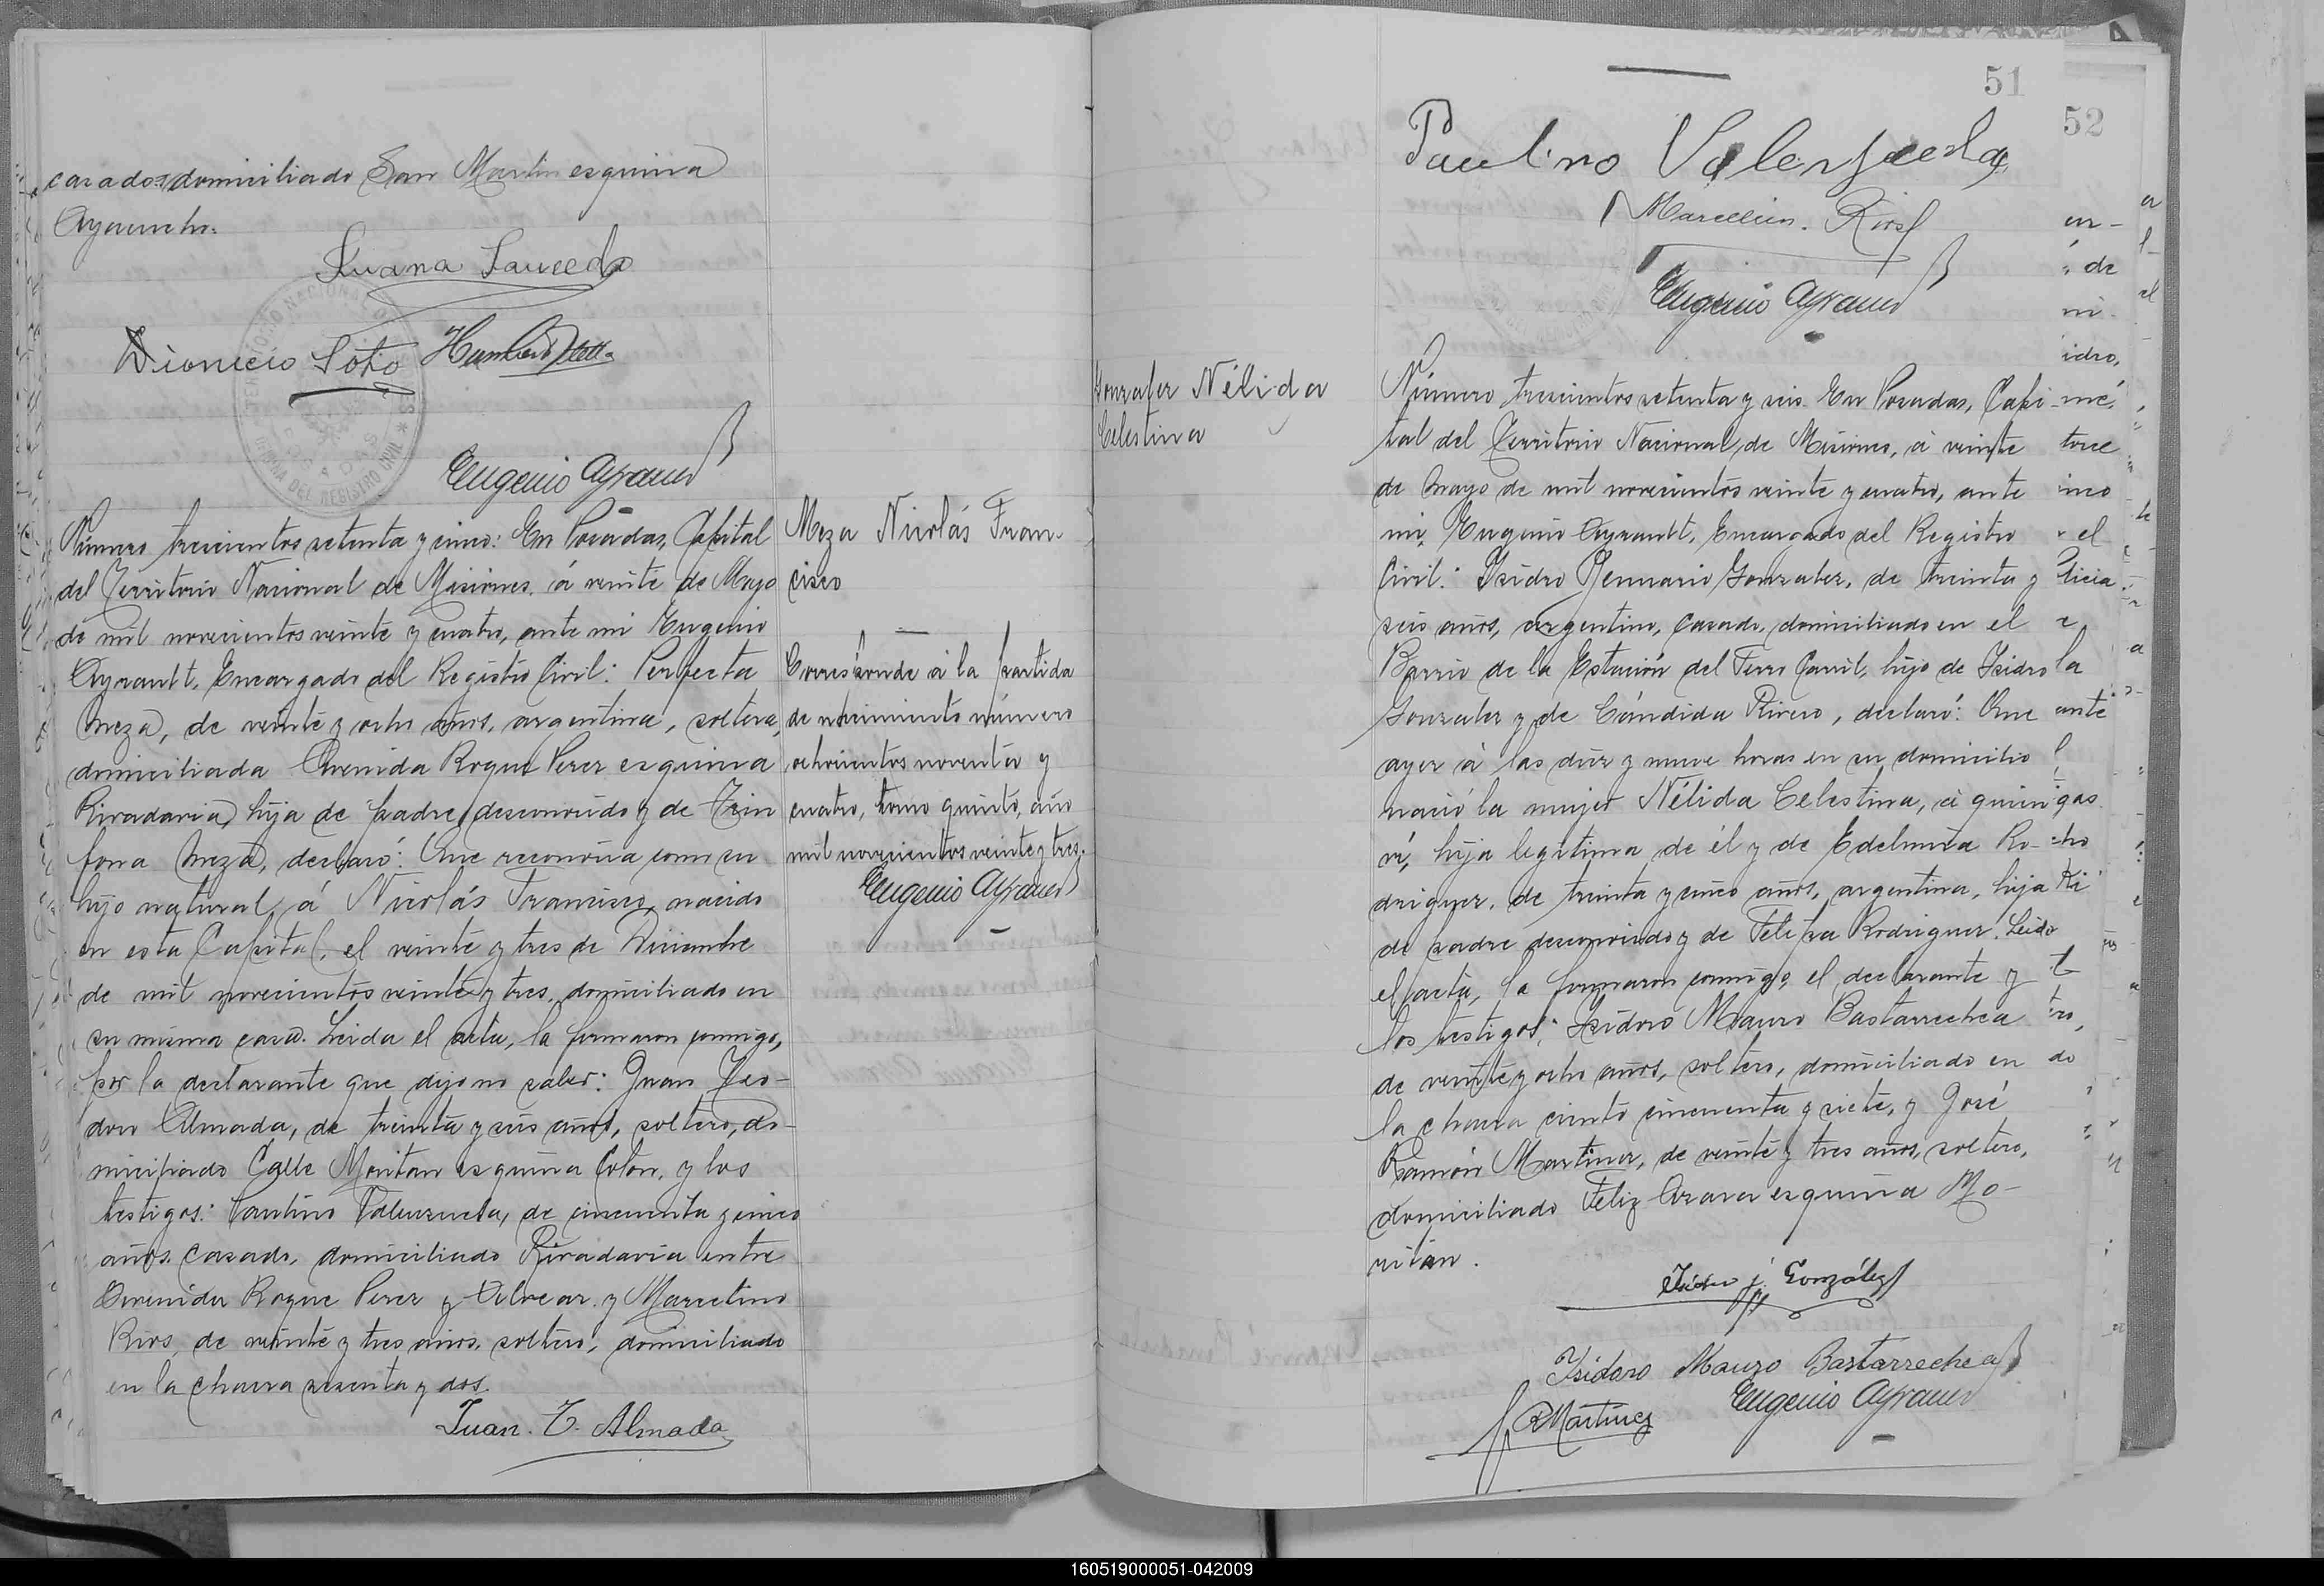 casado, domiciliado San Martin esquina
Ayacucho.
Juana Saucedo
Dionicio Soto
TERRITORIO NACIONAL DE MISIONES
POSADAS
DEL REGISTRO CIVIL
Eugenio Ayrault
Número trescientos setenta y cinco: En Posadas, Capital
del Territorio Nacional de Misiones, á veinte de Mayo
de mil novecientos veinte y cuatro, ante mi Eugenio
Ayrault, Encargado del Registro Civil: Perfecta
Meza, de veinte y ocho años, argentina, soltera,
domiciliada Avenida Roque Perez esquina
Rivadavia, hija de padre desconocido y de Trin
fona Meza, declaró: Que reconocia como su
hijo natural, á Nicolás Francisco, nacido
en esta Capital, el veinte y tres de Diciembre
de mil novecientos veinte y tres, domiciliado en
su misma casa. Leida el acta, la firmaron conmigo,
por la declarante que dijo no saber: Juan Teo-
doro Almada, de treinta y seis años, soltero, do-
miciliado Calle Moritan esquina Colon, y los
testigos: Paulino Valenzuela, de cincuenta y cinco
años, casado, domiciliado Rivadavia entre
Avenida Roque Perez y Velvear y Marcelino
Rios, de veinte y tres años, soltero, domiciliado
en la chacra sesenta y dos.
Juan. T. Almada
Meza Nicolás Fran-
cisco
Corresponde á la partida
de nacimiento número
ochocientos noventa y
cuatro, tomo quinto, año
mil novecientos veinte y tres.
Eugenio Ayrault
51
52
Paulino Valenzuela
Marcelino. Rios
Eugenio Ayrault
Gonzalez Nélida
Celestina
Número trescientos setenta y seis. En Posadas, Capi-
tal del Territorio Nacional de Misiones, á veinte
de Mayo de mil novecientos veinte y cuatro, ante
mi, Eugenio Ayrault, Encargado del Registro
Civil: Isidro Jennario Gonzalez, de treinta y
seis años, argentino, casado, domiciliado en el
Barrio de la Estación del Ferro Carril, hijo de Isidro
Gonzalez y de Cándida Rivero, declaró: Que
ayer á las diez y nueve horas en su domicilio
nació la mujer Nélida Celestina, á quien
vi, hija legitima de él y de Edelmira Ro-
driguez, de treinta y cinco años, argentina, hija
de padre desconocido y de Felipa Rodriguez. Leida
el acta, la firmaron conmigo, el declarante y
los testigos: Isidoro Mauro Bastarrechea
de veinte y ocho años, soltero, domiciliado en
la chacra ciento cincuenta y siete, y José
Ramón Martinez, de veinte y tres años, soltero,
domiciliado Feliz Azara esquina Mo-
ritán.
Isidro J. González
Isidoro Mauro Bastarrechea
Eugenio Ayrault
JRMartínez
160519000051-042009